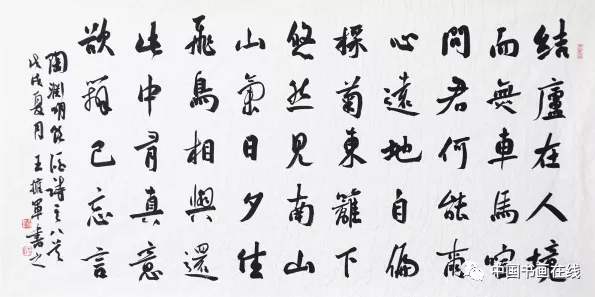 結廬在人境
而無車馬喧
問君何能爾
心遠地自偏
採菊東籬下
悠然見南山
山氣日夕佳
飛鳥相與還
此中有真意
欲辨已忘言
陶淵明飲酒詩之八首
戊戌夏月 王擁軍書之
中国书画在线